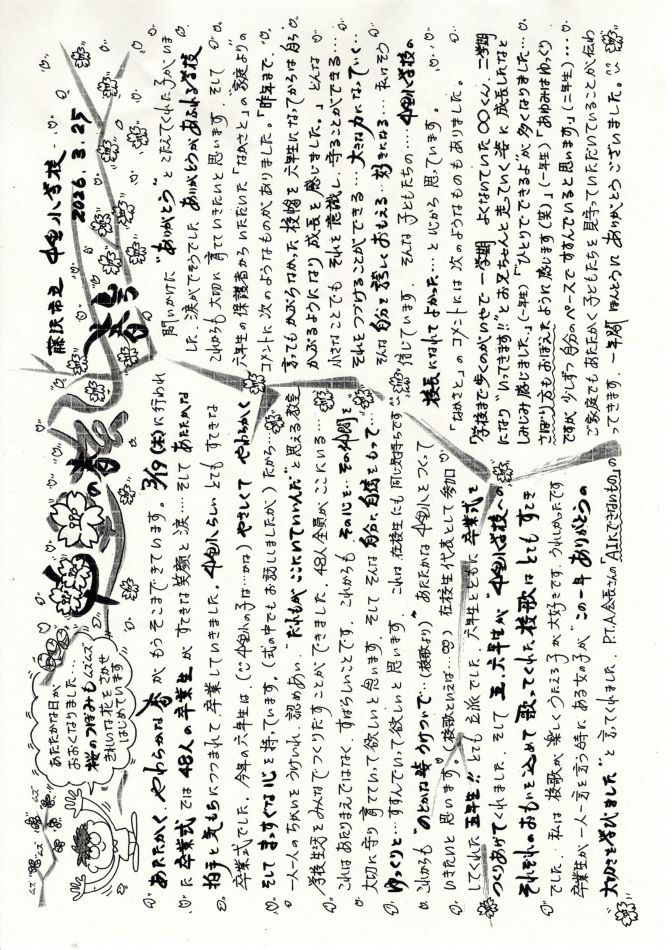 藤沢市立 中里小学校
2026.3.25
春号
あたたかな日が
おおくなりました…
桜のつぼみもムズムズ
きれいな花をさかせ
はじめています
ムズ ムズ
あたたかく、やわらかな春が もうそこまできています。3/19(木)に行われ
た卒業式では48人の卒業生が すてきな笑顔と涙…そして あたたかな
拍手と気もちにつつまれて、卒業していきました。中里小らしい とてもすてきな
卒業式でした。今年の六年生は(中里小の子は…かな) やさしくて やわらかく
そしてまっすぐな心を持っています。(式の中でもお話ししましたが)だから…
一人一人のちがいをうけいれ、認めあい、“だれもがここにいていいんだ”と思える教室
学校生活をみんなでつくりだすことができました。48人全員がここにいる…
これはあたりまえではなく、すばらしいことです。これからも その心を…その仲間を
大切に守り育てていって欲しいと思います。そして そんな自分に自信をもって…
ゆっくりと…すすんでいって欲しいと思います。これは、在校生にも同じ気持ちです
これからも“のどかな夢 うけついで…(校歌より)”あたたかな 中里小をつくって
いきたいと思います。(校歌といえば…) 在校生代表として参加
してくれた五年生!! とても立派でした。六年生とともに卒業式を
つくりあげてくれました。そして 五、六年生が“中里小学校への
それぞれのおもいを込めて歌ってくれた校歌はとてもすてき
でした。私は 校歌が楽しくうたえる子が大好きです。うれしかったです
卒業生が一人一言を言う時に ある女の子が“この一年ありがとうの
大切さを学びました”と言ってくれました。PTA会長さんの「AIにできないもの」の
問いかけに“ありがとう”とこたえてくれた子がいま
した。涙がでそうでした。ありがとうがあふれる学校
これからも大切に育てていきたいと思います。そして
六年生の保護者からいただいた「なかさと」の家庭よりの
コメントに次のようなものがありました。「昨年まで、
言ってもかぶらなかった校帽を六年生になってからは自ら
かぶるようになり成長を感じました。」どんな
小さなことでも それを意識し、守ることができる…
それをつづけることができる…大きな力になっていく…
そんな自分を誇しくおもえる…好きになる…私はそう
信じています。そんな子どもたちの……中里小学校の
校長になれてよかった…と心から思っています。
「なかさと」のコメントには次のようなものもありました。
「学校まで歩くのがいやで一学期 よくないていた〇〇くん、二学期
になり“いってきます!!”とお兄ちゃんと走っていく姿に成長したなと
しみじみ感じました。」(一年生)「“ひとりでできるよ”が多くなりました…
さぼり方もおぼえたように感じます(笑)」(一年生)「あゆみはゆっくり
ですが 少しずつ自分のペースですすんでいると思います。」(二年生)…
ご家庭でもあたたかく子どもたちを見守っていただいていることが伝わ
ってきます。一年間 ほんとうに ありがとうございました。